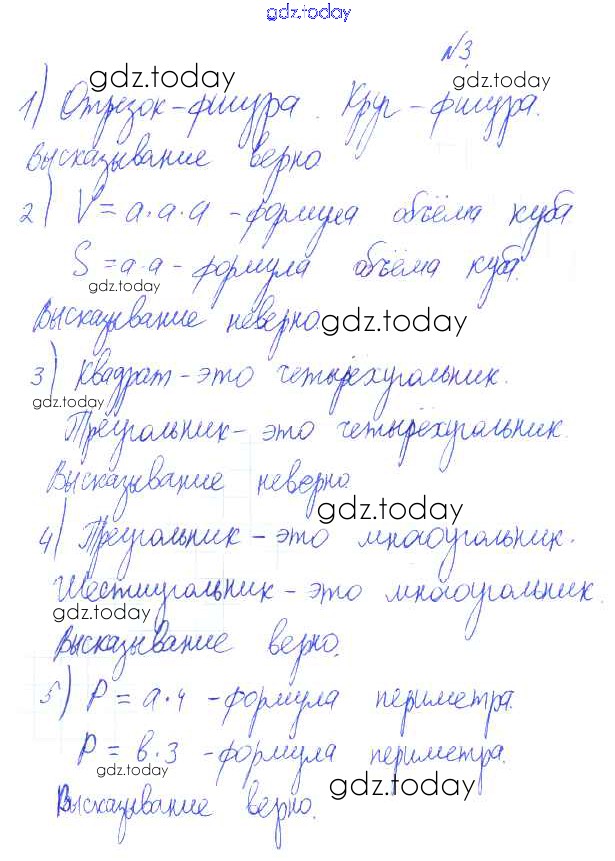 gdz.today
№3.
gdz.today gdz.today
1) Отрезок - фигура. Круг - фигура.
Высказывание верно
2) V = a·a·a - формула объёма куба
S = a·a - формула объёма куба.
gdz.today
Высказывание неверно. gdz.today
3) Квадрат - это четырёхугольник.
gdz.today
Треугольник - это четырёхугольник.
Высказывание неверно.
gdz.today
4) Треугольник - это многоугольник.
Шестиугольник - это многоугольник.
gdz.today
Высказывание верно.
5) P = a·4 - формула периметра.
P = b·3 - формула периметра.
gdz.today gdz.today
Высказывание верно.